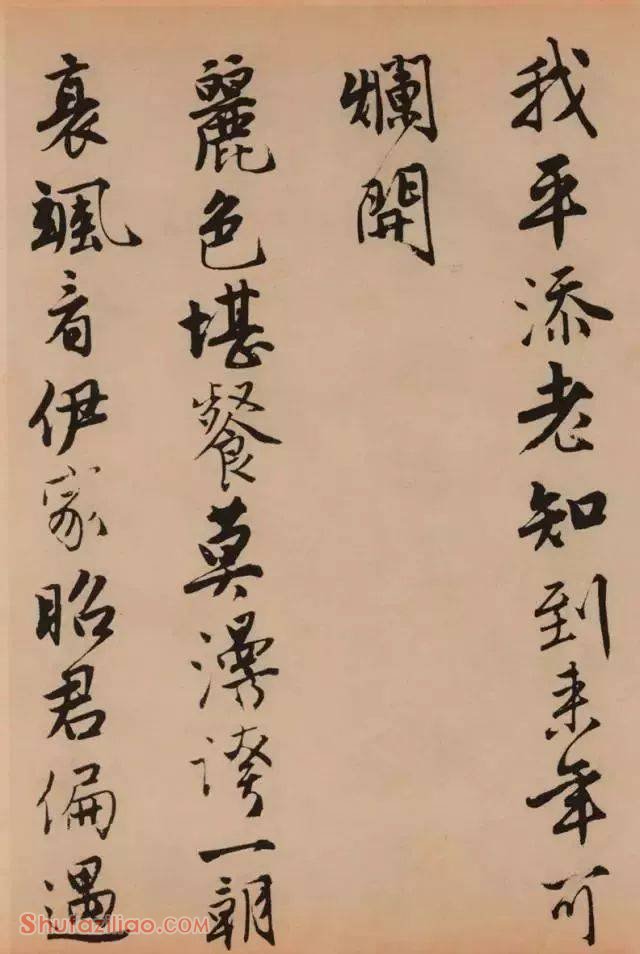 我平添老知到来年可
爛開
麗色堪餐莫漫誇一朝
衰颯看伊家昭君偏遇
Shufaziliao.com